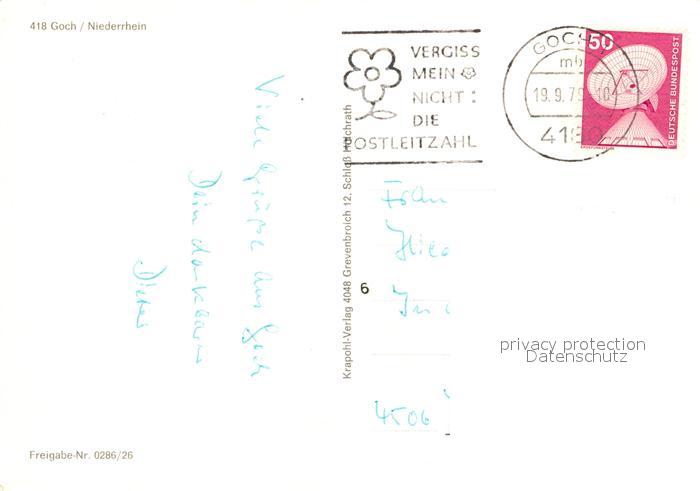 418 Goch / Niederrhein
VERGISS
MEIN
NICHT:
DIE
POSTLEITZAHL
GOCH 1
mb
19.9.79-10
4180
50
DEUTSCHE BUNDESPOST
Viele Grüße aus Goch
Dein dankbarer
Dieter
Krapohl-Verlag 4048 Grevenbroich 12, Schloß Hülchrath
6
Frau
4506
privacy protection
Datenschutz
Freigabe-Nr. 0286/26